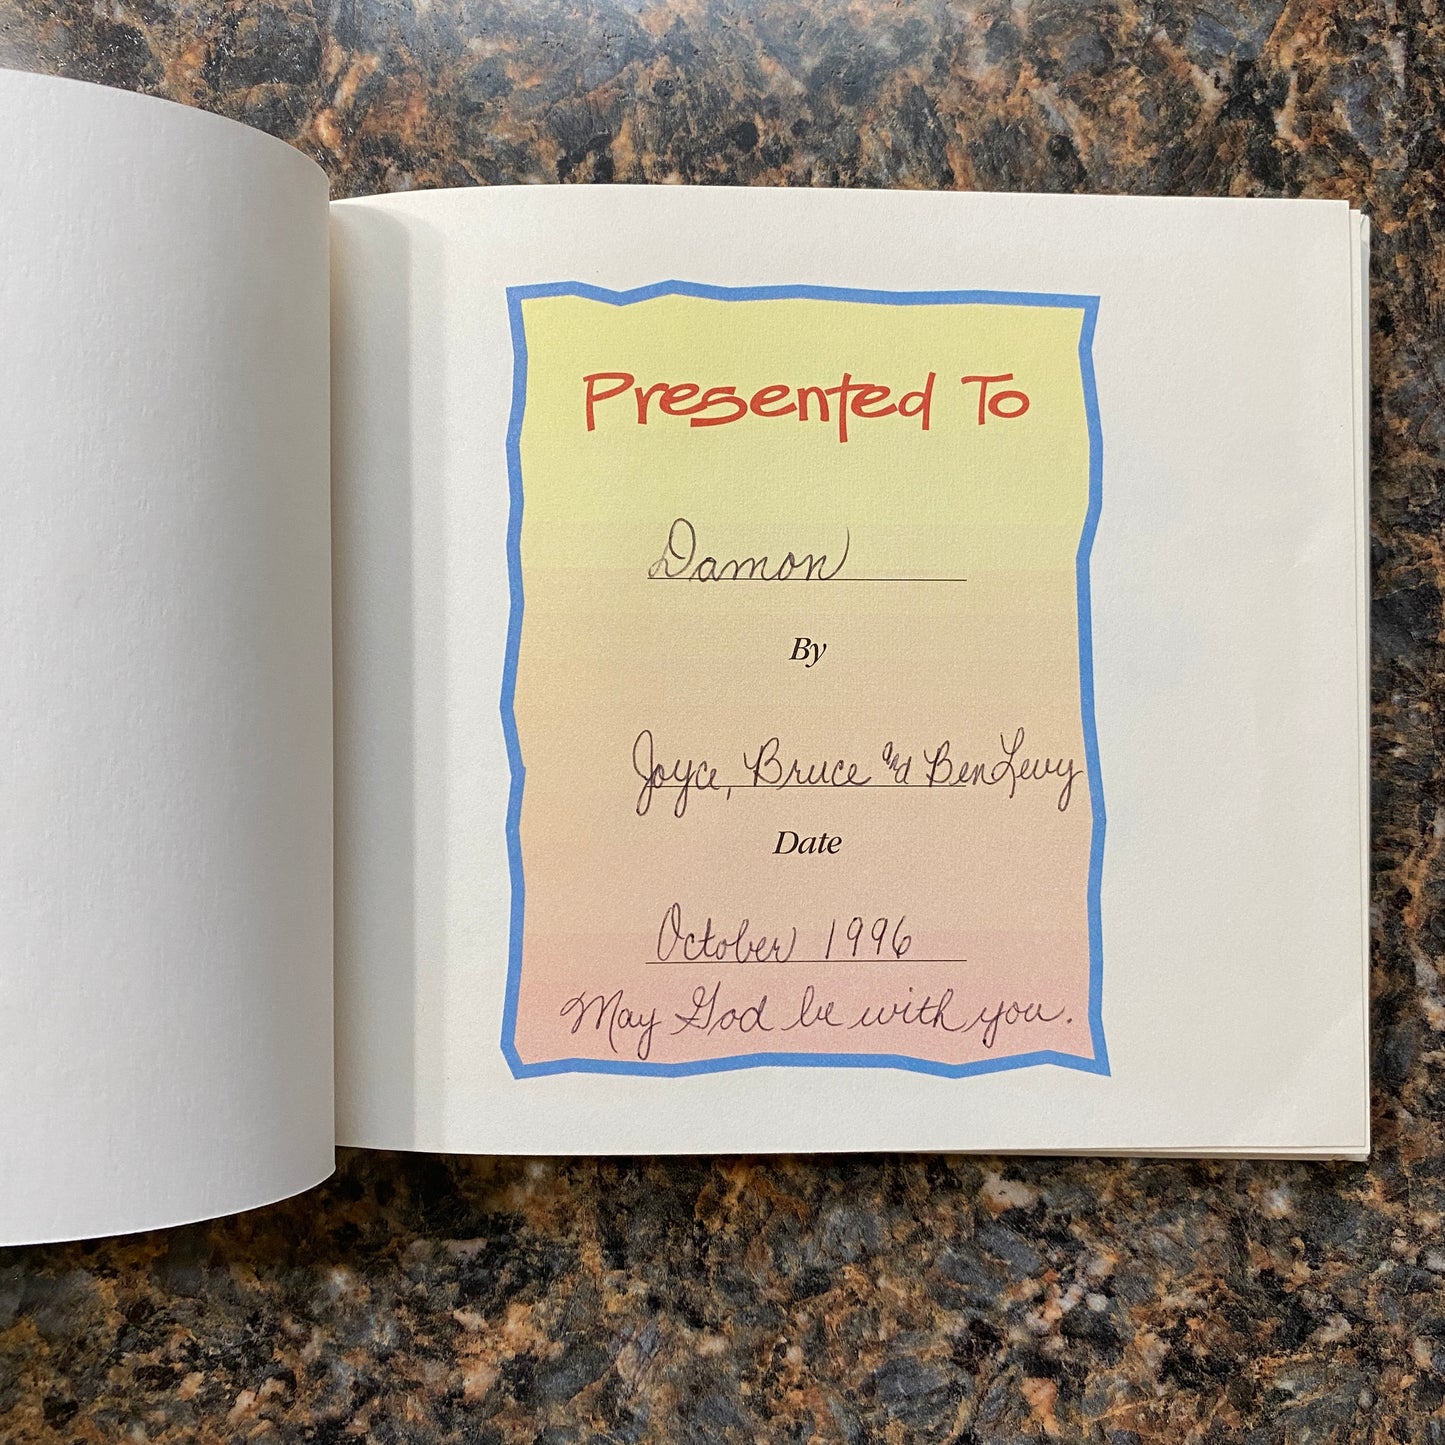 Presented To
Damon
By
Joyce, Bruce and Ben Levy
Date
October 1996
May God be with you.